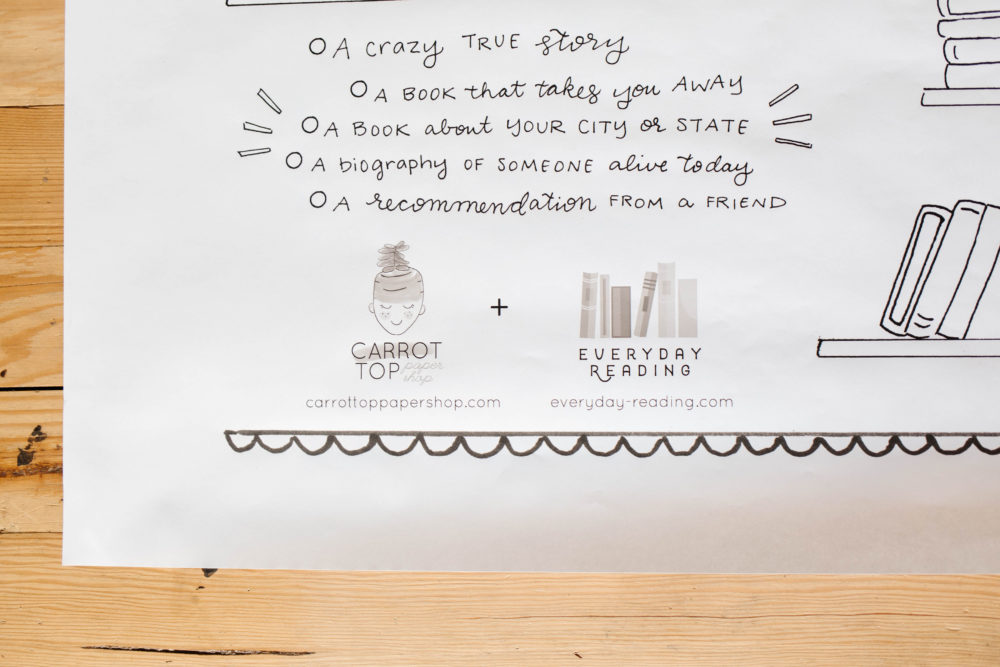 A crazy TRUE story
A BOOK that takes you AWAY
A BOOK about YOUR CITY or STATE
A biography OF SOMEONE alive today
A recommendation FROM a FRIEND
+
CARROT
TOP paper
shop
EVERYDAY
READING
carrottoppapershop.com
everyday-reading.com